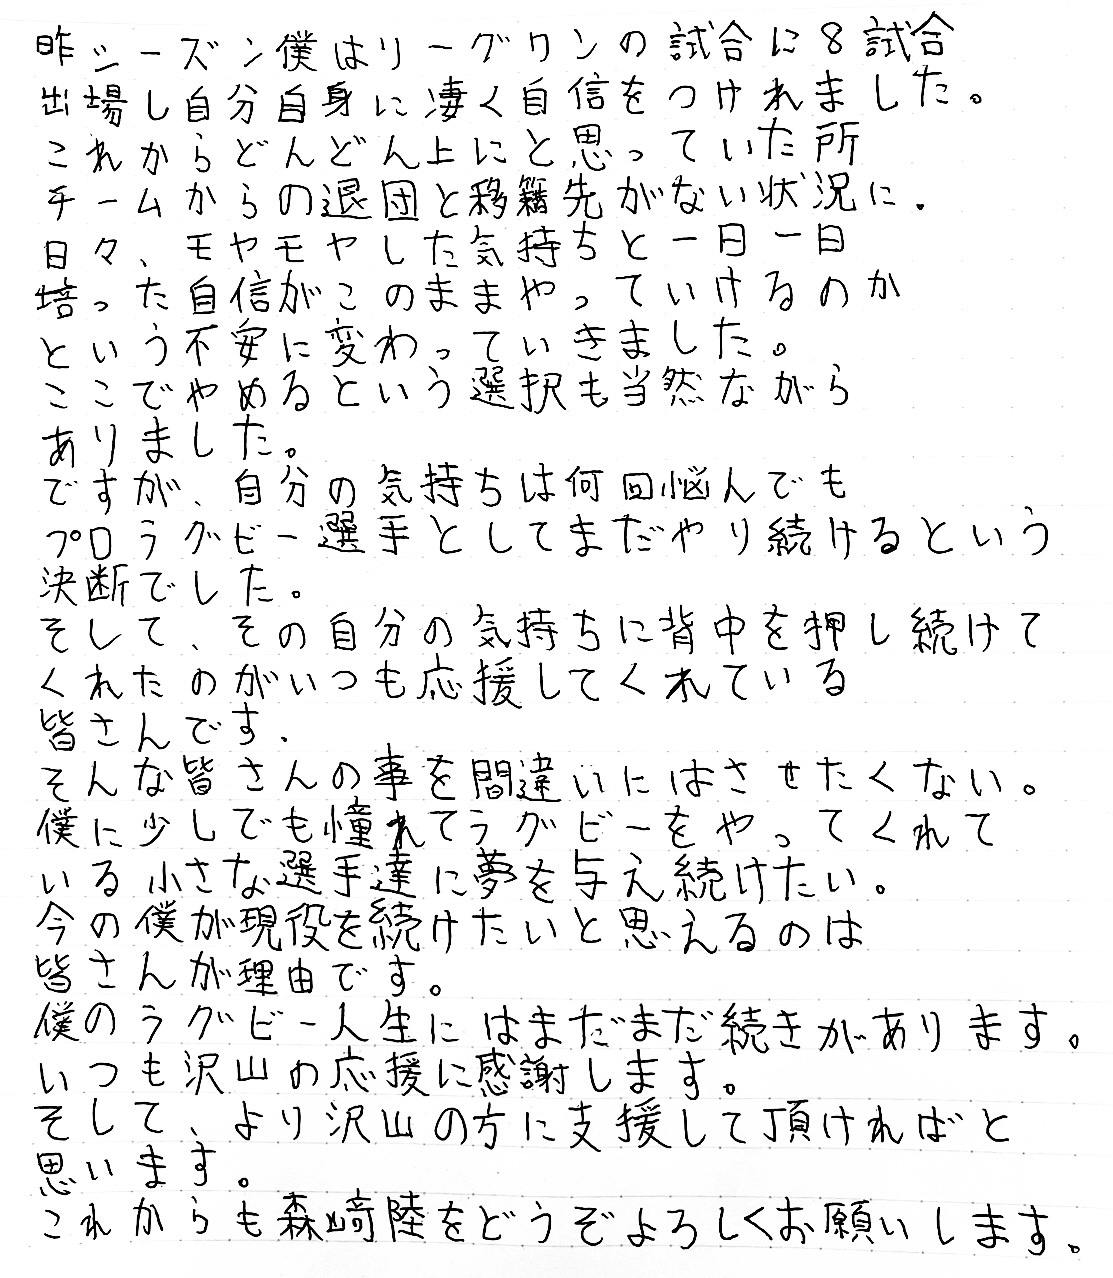 昨シーズン僕はリーグワンの試合に8試合
出場し自分自身に凄く自信をつけれました。
これからどんどん上にと思っていた所
チームからの退団と移籍先がない状況に.
日々、モヤモヤした気持ちと一日一日
培った自信がこのままやっていけるのか
という不安に変わっていきました。
ここでやめるという選択も当然ながら
ありました。
ですが、自分の気持ちは何回悩んでも
プロラグビー選手としてまだやり続けるという
決断でした。
そして、その自分の気持ちに背中を押し続けて
くれたのがいつも応援してくれている
皆さんです.
そんな皆さんの事を間違いにはさせたくない。
僕に少しでも憧れてラグビーをやってくれて
いる小さな選手達に夢を与え続けたい。
今の僕が現役を続けたいと思えるのは
皆さんが理由です。
僕のラグビー人生にはまだまだ続きがあります。
いつも沢山の応援に感謝します。
そして、より沢山の方に支援して頂ければと
思います。
これからも森﨑陸をどうぞよろしくお願いします。